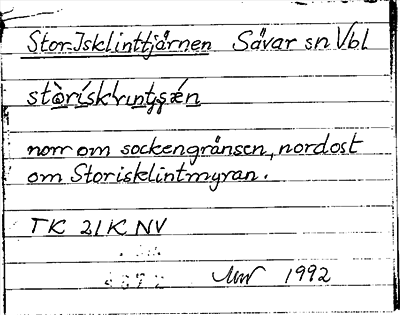 Stor-Isklinttjärnen Sävar sn Vbl
norr om sockengränsen, nordost
om Storisklintmyran.
TK 21K NV
1992